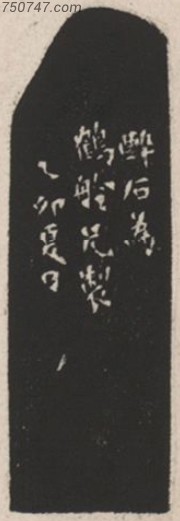 750747.com
醉石為
鶴笙兄製
乙卯夏日